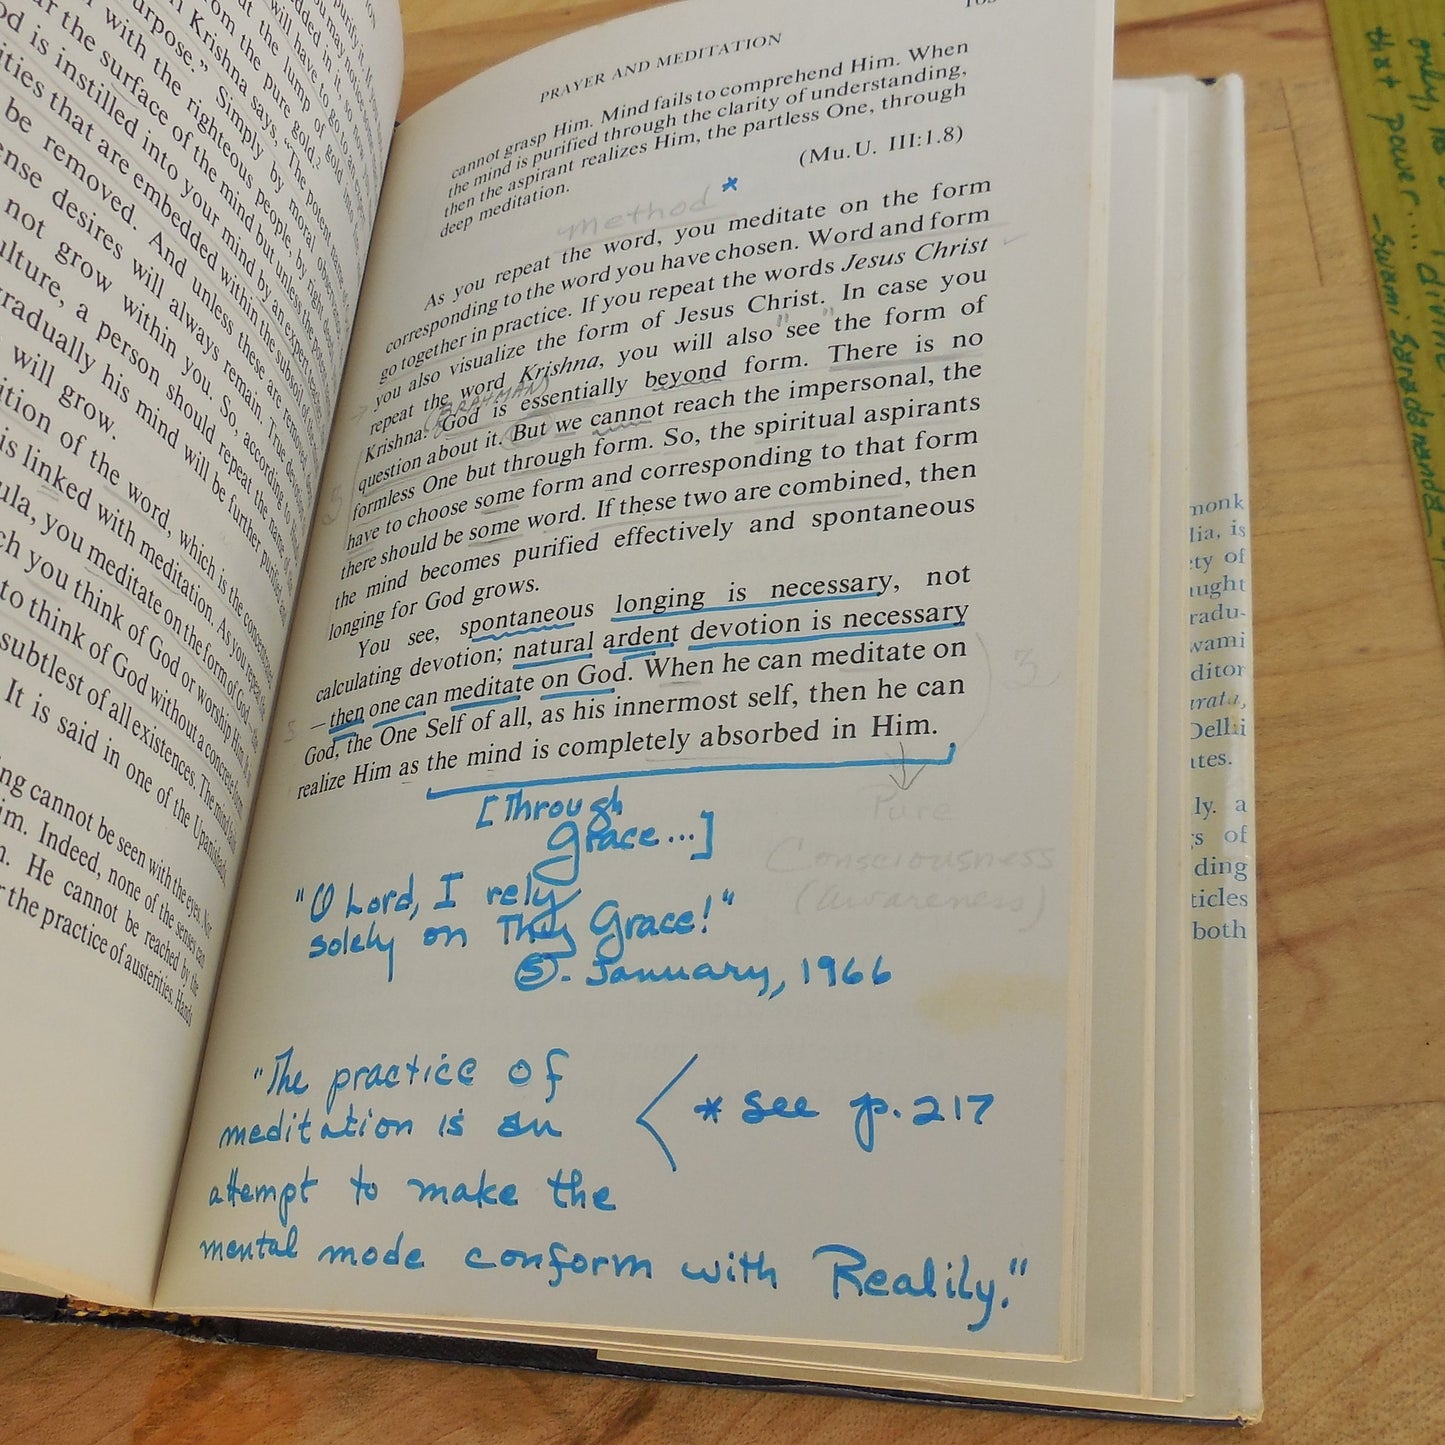 purify it. If
you may notice
dded in it, so now
will have to go to an expert
at the lump of gold into
rom the pure gold."
n Krishna says, "The potent name of
urpose." Simply by moral observances
r with the righteous people, by right
ar the surface of the mind but unless the
od is instilled into your mind by an expert teacher
ities that are embedded within the subsoil of
be removed. And unless these are removed,
ense desires will always remain. True devotion
not grow within you. So, according to
ulture, a person should repeat the name of
gradually his mind will be further purified and
will grow.
ition of the word, which is the concentrated
is linked with meditation. As you repeat the
ula, you meditate on the form of God
ch you think of God or worship Him. It is
to think of God without a concrete form
subtlest of all existences. The mind
It is said in one of the Upanishads,
ing cannot be seen with the eyes. Nor
im. Indeed, none of the senses can
m. He cannot be reached by the
r the practice of austerities. Hands
PRAYER AND MEDITATION
cannot grasp Him. Mind fails to comprehend Him. When
the mind is purified through the clarity of understanding,
then the aspirant realizes Him, the partless One, through
deep meditation.
(Mu.U. III:1.8)
method *
As you repeat the word, you meditate on the form
corresponding to the word you have chosen. Word and form
go together in practice. If you repeat the words Jesus Christ
you also visualize the form of Jesus Christ. In case you
repeat the word Krishna, you will also "see" the form of
(BRAHMAN)
Krishna. God is essentially beyond form. There is no
question about it. But we cannot reach the impersonal, the
formless One but through form. So, the spiritual aspirants
have to choose some form and corresponding to that form
there should be some word. If these two are combined, then
the mind becomes purified effectively and spontaneous
longing for God grows.
You see, spontaneous longing is necessary, not
calculating devotion; natural ardent devotion is necessary
—then one can meditate on God. When he can meditate on
God, the One Self of all, as his innermost self, then he can
realize Him as the mind is completely absorbed in Him.
3
[Through
Grace...]
Pure
Consciousness
(Awareness)
"O Lord, I rely
solely on Thy Grace!"
S. January, 1966
"The practice of
meditation is an
attempt to make the
mental mode conform with Reality."
* see p. 217
monk
lia, is
ety of
aught
radu-
wami
ditor
arata,
Delhi
ates.
ly. a
gs of
ding
ticles
both
only,
that power.... divine
—Swami Saradananda